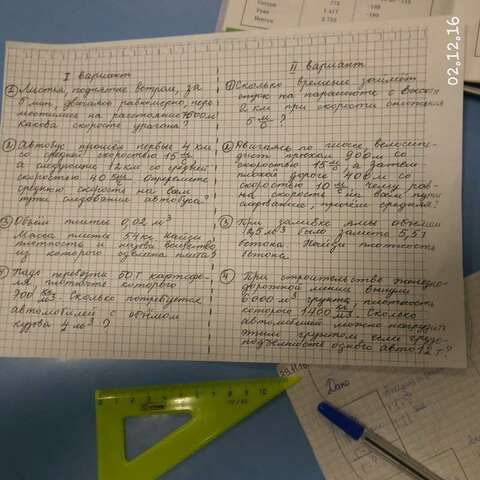 Сатурн 775 -180
Уран 1 417 -180
Нептун
02.12.16
I вариант
① Листья, поднятые ветром, за
5 мин, двигаясь равномерно, пере
местились на расстояние 7500 м
Какова скорость урагана?
② Автобус прошел первые 4 км
со средней скоростью 15 м/с
а следующие 12 км со средней
скоростью 40 Определите
среднюю скорость на всём
пути следования автобуса?
③ Объём плиты 0,02 м³
Масса плиты 54 кг. Найди
плотность и назови вещество,
из которого сделана плита?
4 Надо перевезти 50 Т картофе-
ля, плотность которого
700 кг/м3. Сколько потребуется
автомобилей с объёмом
кузова 4 м³?
II вариант
① Сколько времени займёт
спуск на парашюте с высоты
2 км при скорости снижения
5 м/с?
② Двигаясь по шоссе, велосипе-
дист проехал 900 м со
скоростью 15 м/с а затем по
плохой дороге 400 м со
скоростью 10 м/с. Чему рав-
на скорость на всём пути
следования
③ При заливке ямы объёмом
2,5 м³ было залито 5,5 т
бетона. Найди плотность
бетона
④ При строительстве железно-
дорожной линии вынули
6000 м³ грунта, плотность
которого 1400 кг/м3. Сколько
автомобилей можно нагрузить
этим грунтом, если грузо-
подъёмность одного авто 12 т?
29.11.16
Дано